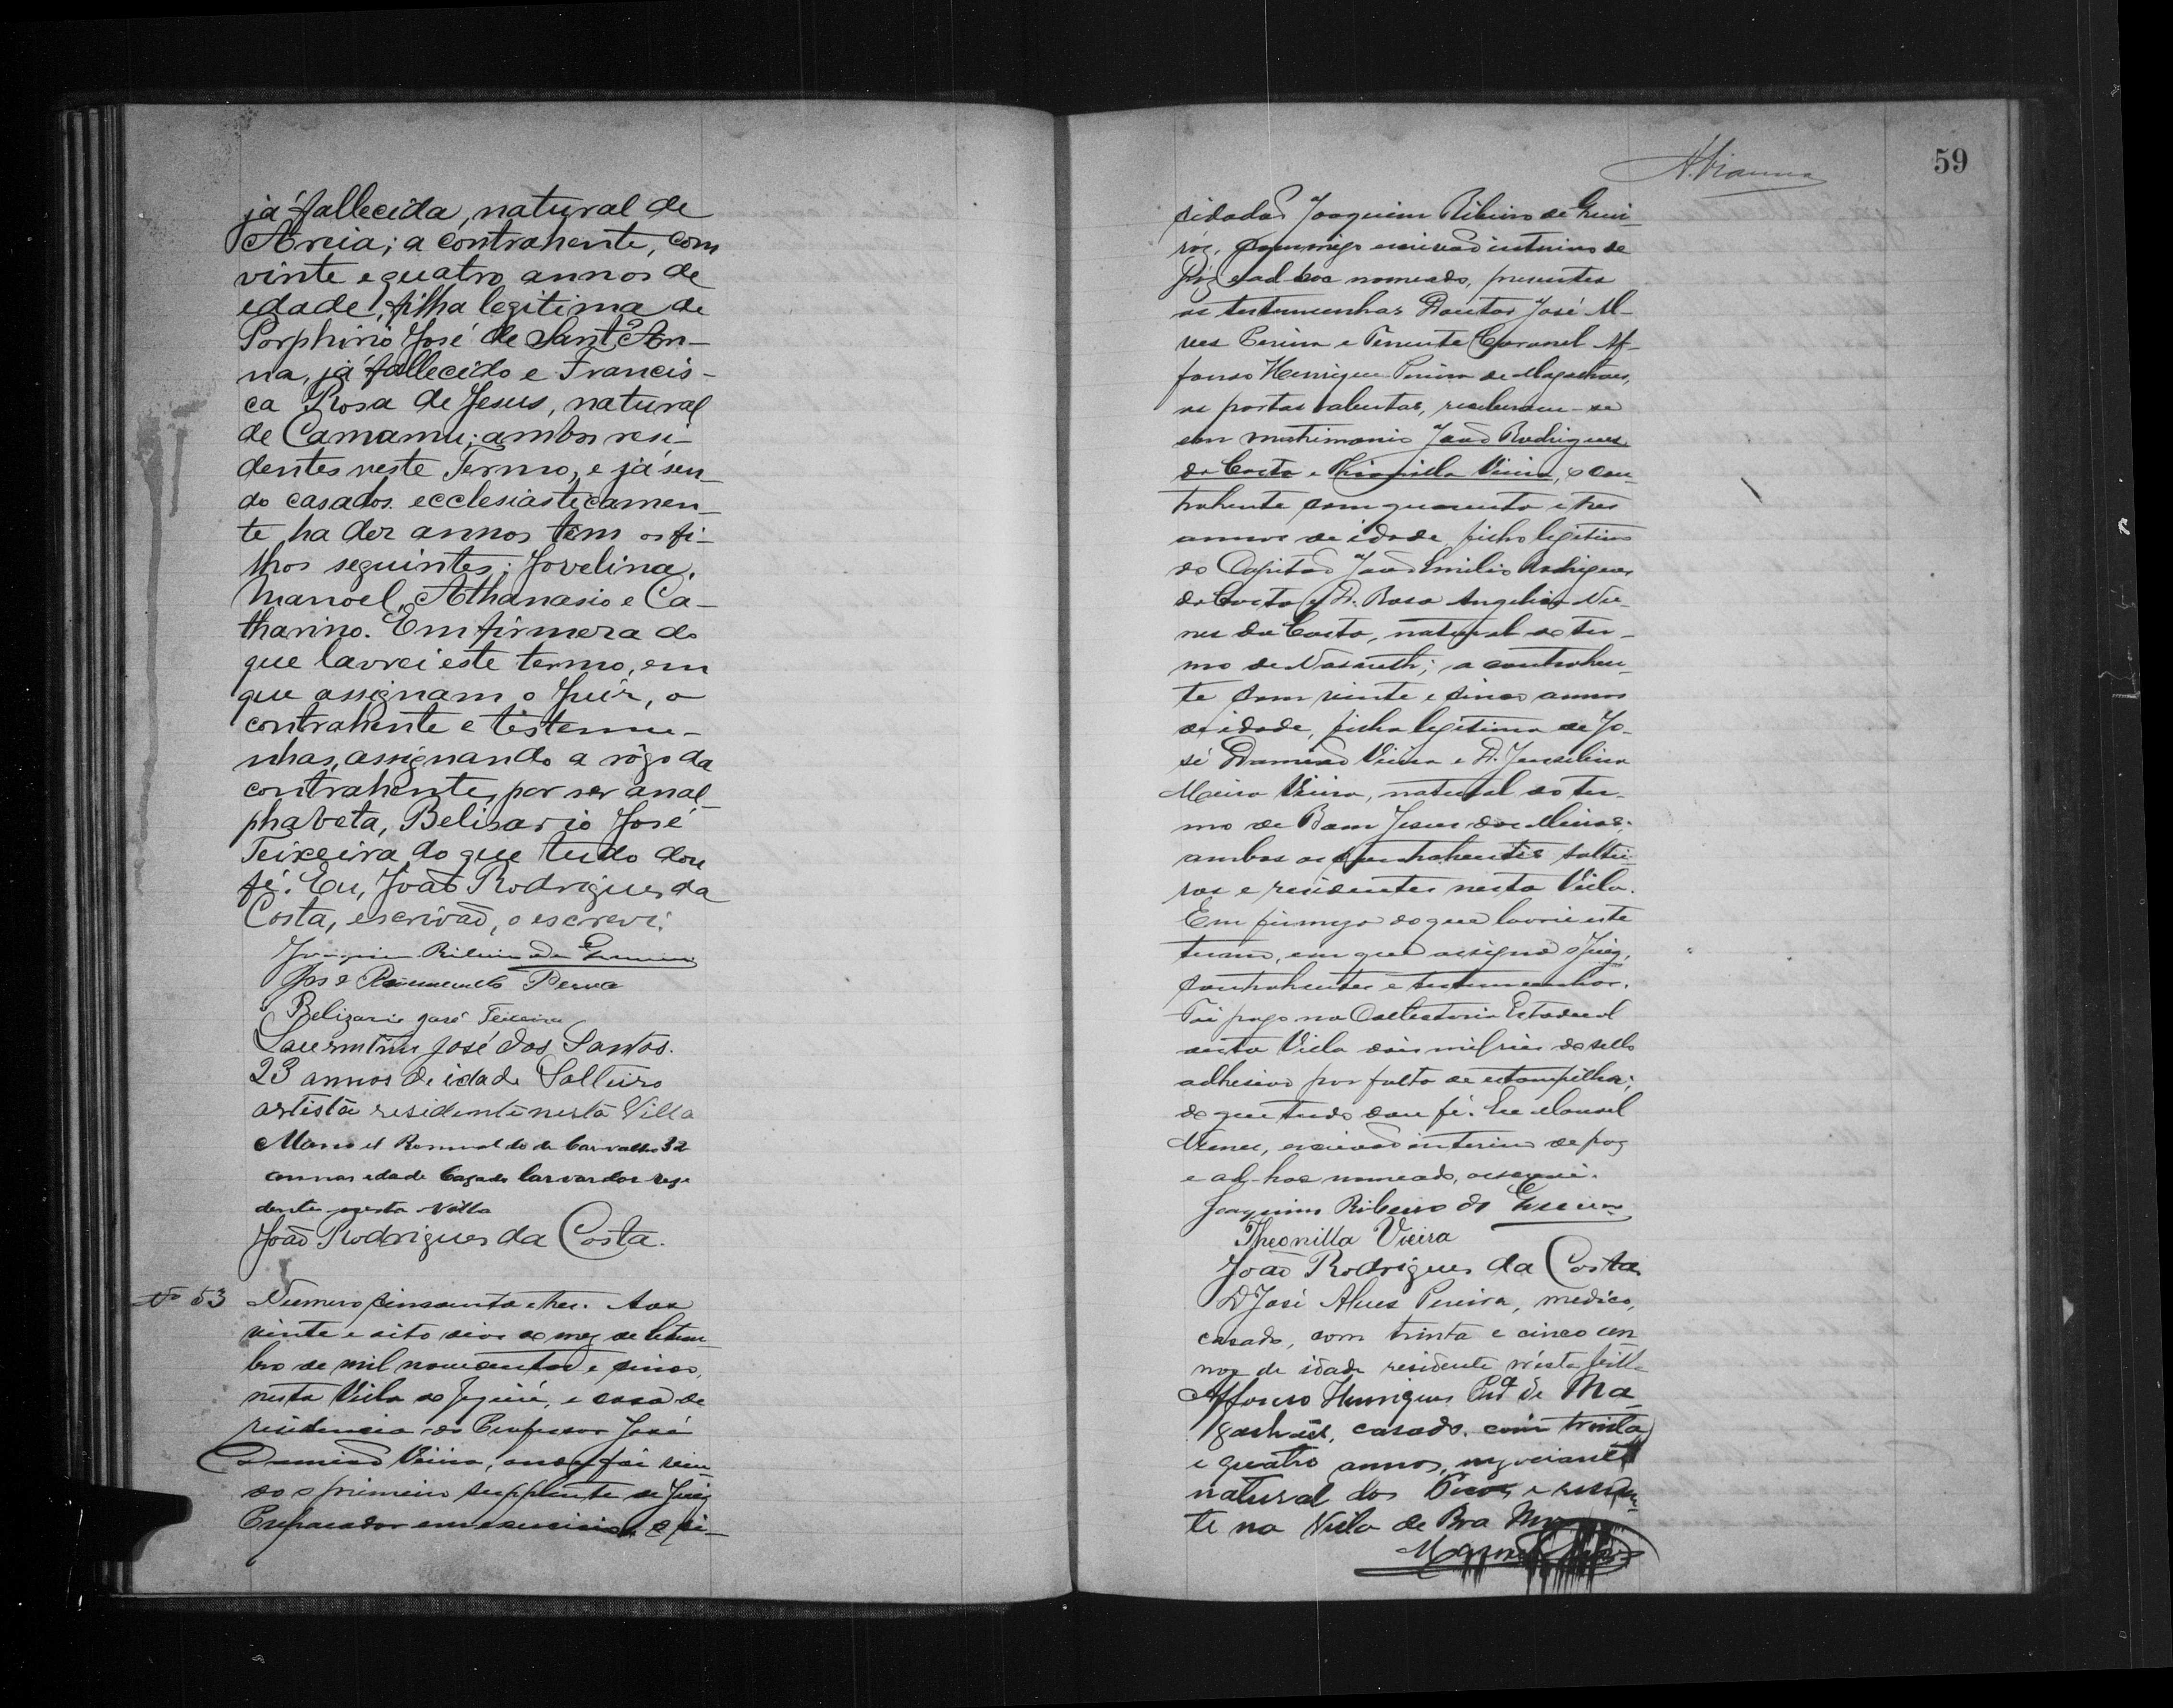 já fallecida, natural de
Areia; a contrahente, com
vinte e quatro annos de
edade, filha legitima de
Porphirio José de Sant'An-
na, já fallecido e Francis-
ca Rosa de Jesus, natural
de Camamu; ambos resi-
dentes neste Termo, e já sen-
do casados ecclesiasticamen-
te ha dez annos têm os fi-
lhos seguintes: Jovelina,
Manoel, Athanasio e Ca-
tharino. Em firmeza do
que lavrei este termo, em
que assignam o Juiz, o
contrahente e testemu-
nhas, assignando a rôgo da
contrahente, por ser anal-
phabeta, Belisario José
Teixeira do que tudo dou
fé. Eu, João Rodrigues da
Costa, escrivão, o escrevi.
Joaquim Ribeiro de
José
Belizario José Teixeira
José dos Santos.
23 annos de idade Solteiro
artista residente nesta Villa
Manoel Romualdo de Carvalho 32
annos edade Cazado larvardor rezi
dente nesta Villa
João Rodrigues da Costa.
Nº 53 Numero cincoenta e tres. Aos
vinte e oito dias do mez de Setem-
bro de mil novecentos e cinco,
nesta Villa de Jequié, e casa de
residencia do Professor José
Damião Vieira, onde foi vin-
do o primeiro supplente de Juiz
Preparador em exercicio o ci-
59
A. Vianna
dadão Joaquim Ribeiro de
commigo escrivão interino de
Paz e ad-hoc nomeado, presentes
as testemunhas Doutor José Al-
ves Pereira e Tenente Coronel Af-
fonso Henriques Pereira de Magalhães,
as portas abertas, receberam-se
em matrimonio João Rodrigues
da Costa e Theonilla Vieira, o con-
trahente com quarenta e tres
annos de idade, filho legitimo
do Capitão João Emilio Rodrigues
da Costa e D. Rosa Angelica Nu-
nes da Costa, natural do ter-
mo de Nazareth; a contrahen-
te com vinte e cinco annos
de idade, filha legitima de Jo-
sé Damião Vieira e D.
Meira Vieira, natural do ter-
mo de Bom Jesus dos Meiras;
ambos os contrahentes soltei-
ros e residentes nesta Villa.
Em firmeza do que lavrei este
termo, em que assigna o Juiz,
contrahentes e testemunhas.
Foi pago na Collectoria Estadual
desta Villa dois mil reis de sello
adhesivo por falta de estampilha;
do que tudo dou fé. Eu Manoel
Nunes, escrivão interino de paz
e ad-hoc nomeado, o escrevi.
Joaquim Ribeiro de
Theonilla Vieira
João Rodrigues da Costa
Dr José Alves Pereira, medico,
casado, com trinta e cinco an
nos de idade residente n'esta Villa
Affonso Henriques Prª de Ma
galhães, casado, com trinta
e quatro annos, negociante
natural dos e residen
te na Villa de Bôa
Manoel